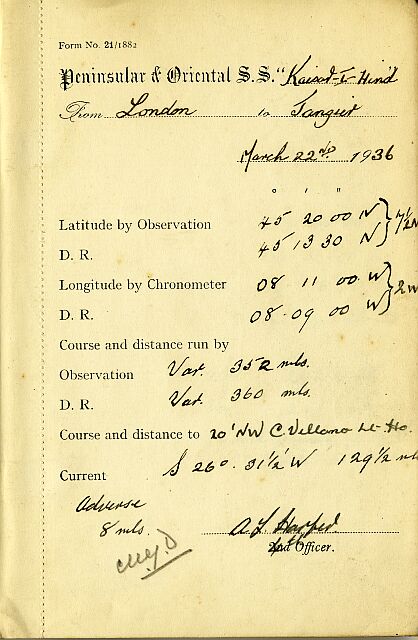 Form No. 21/1882
Peninsular & Oriental S.S. "Kaisar-I-Hind
From London to Tangier
March 22nd. 1936
° ' "
Latitude by Observation 45 20 00 N
D. R. 45 13 30 N
Longitude by Chronometer 08 11 00 W } 2 W
D. R. 08 09 00 W
Course and distance run by
Observation Var. 352 mls.
D. R. Var. 360 mls.
Course and distance to 20' NW C. Villano Lt. Ho.
S 26° 31½ W 129½
Current
Adverse
8 mls.
2nd Officer.